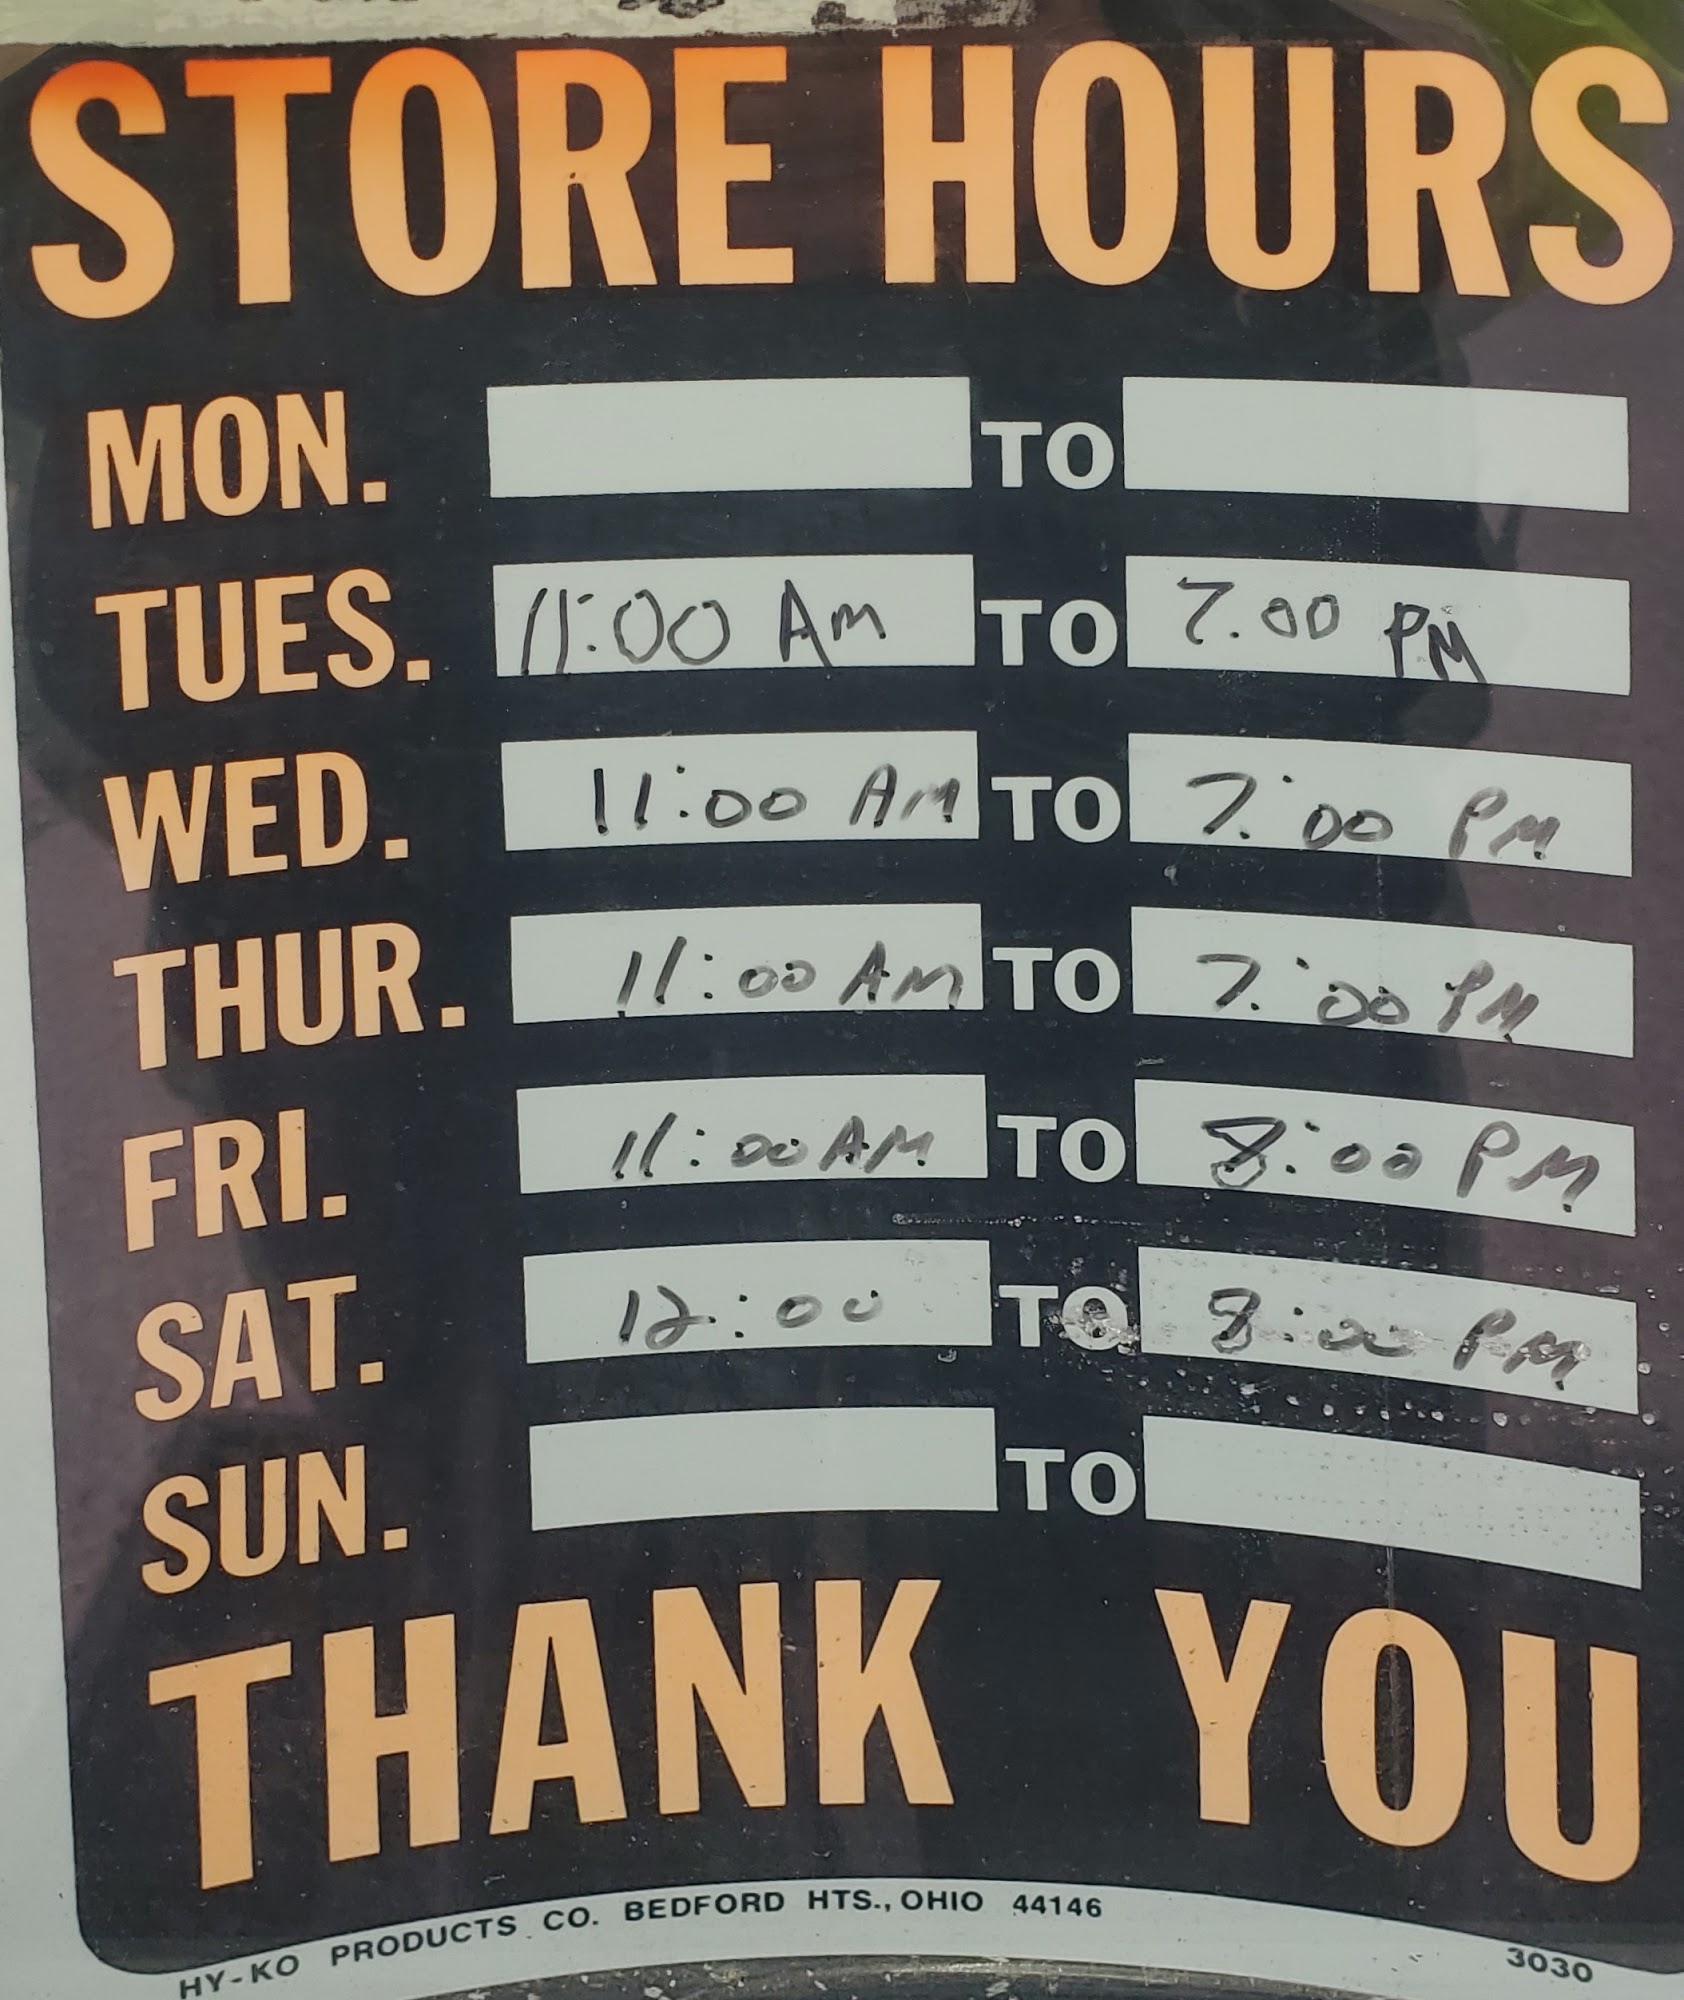 STORE HOURS
MON. TO
TUES. 11:00 Am TO 7:00 PM
WED. 11:00 AM TO 7:00 PM
THUR. 11:00 AM TO 7:00 PM
FRI. 11:00 AM TO 8:00 PM
SAT. 12:00 TO 8:00 PM
SUN. TO
THANK YOU
HY-KO PRODUCTS CO. BEDFORD HTS., OHIO 44146
3030